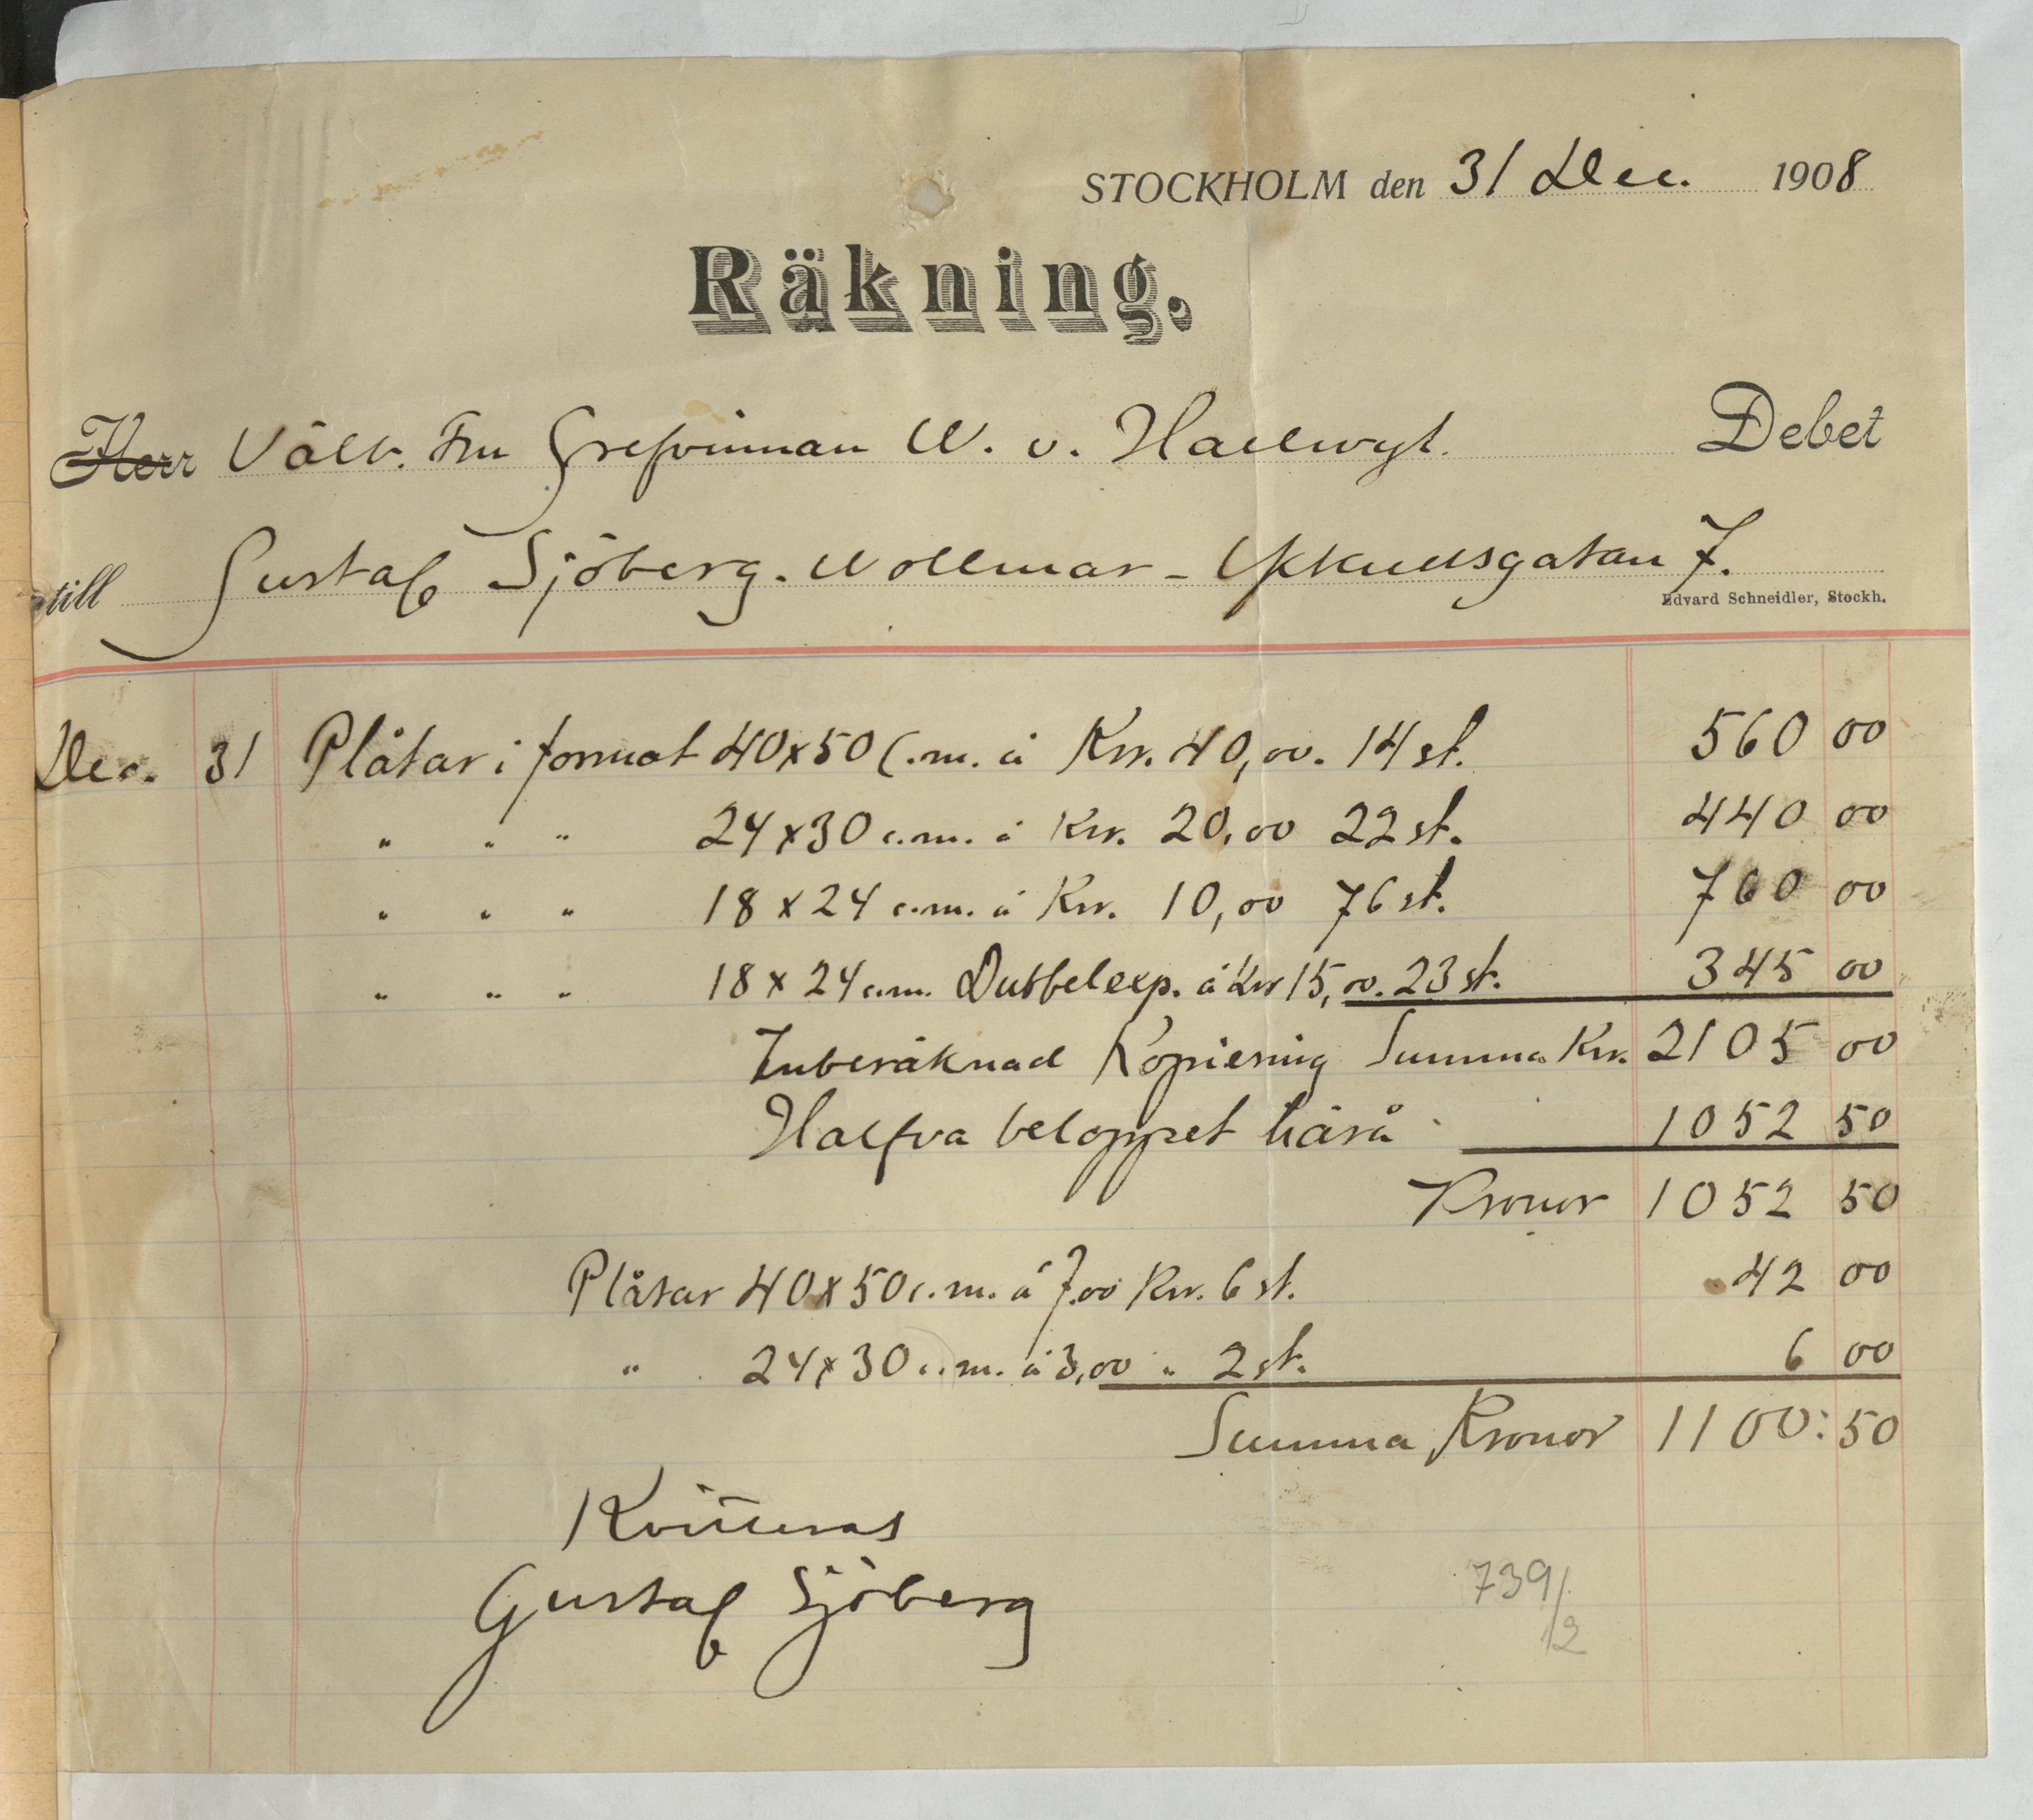 STOCKHOLM den 31 Dec. 1908
Räkning.
Herr Välb. Fru Grefvinnan W. v. Hallwyl. Debet
till Gustaf Sjöberg. Wollmar-Yxkullsgatan 7.
Edvard Schneidler, Stockh.
Dec. 31 Plåtar i format 40x50 c.m. á Kr. 40,00. 14 st. 560 00
" " " 24x30 c.m. á Kr. 20,00 22 st. 440 00
" " " 18x24 c.m. á Kr. 10,00 76 st. 760 00
" " " 18x24 c.m. Dubbelexp. á Kr 15,00. 23 st. 345 00
Inberäknad Kopiering Summa Kr. 2105 00
Halfva beloppet härå 1052 50
Kronor 1052 50
Plåtar 40x50 c.m. á 7.00 Kr. 6 st. 42 00
" 24x30 c.m. á 3,00 " 2 st. 6 00
Summa Kronor 1100:50
Kvitteras
Gustaf Sjöberg
739/2